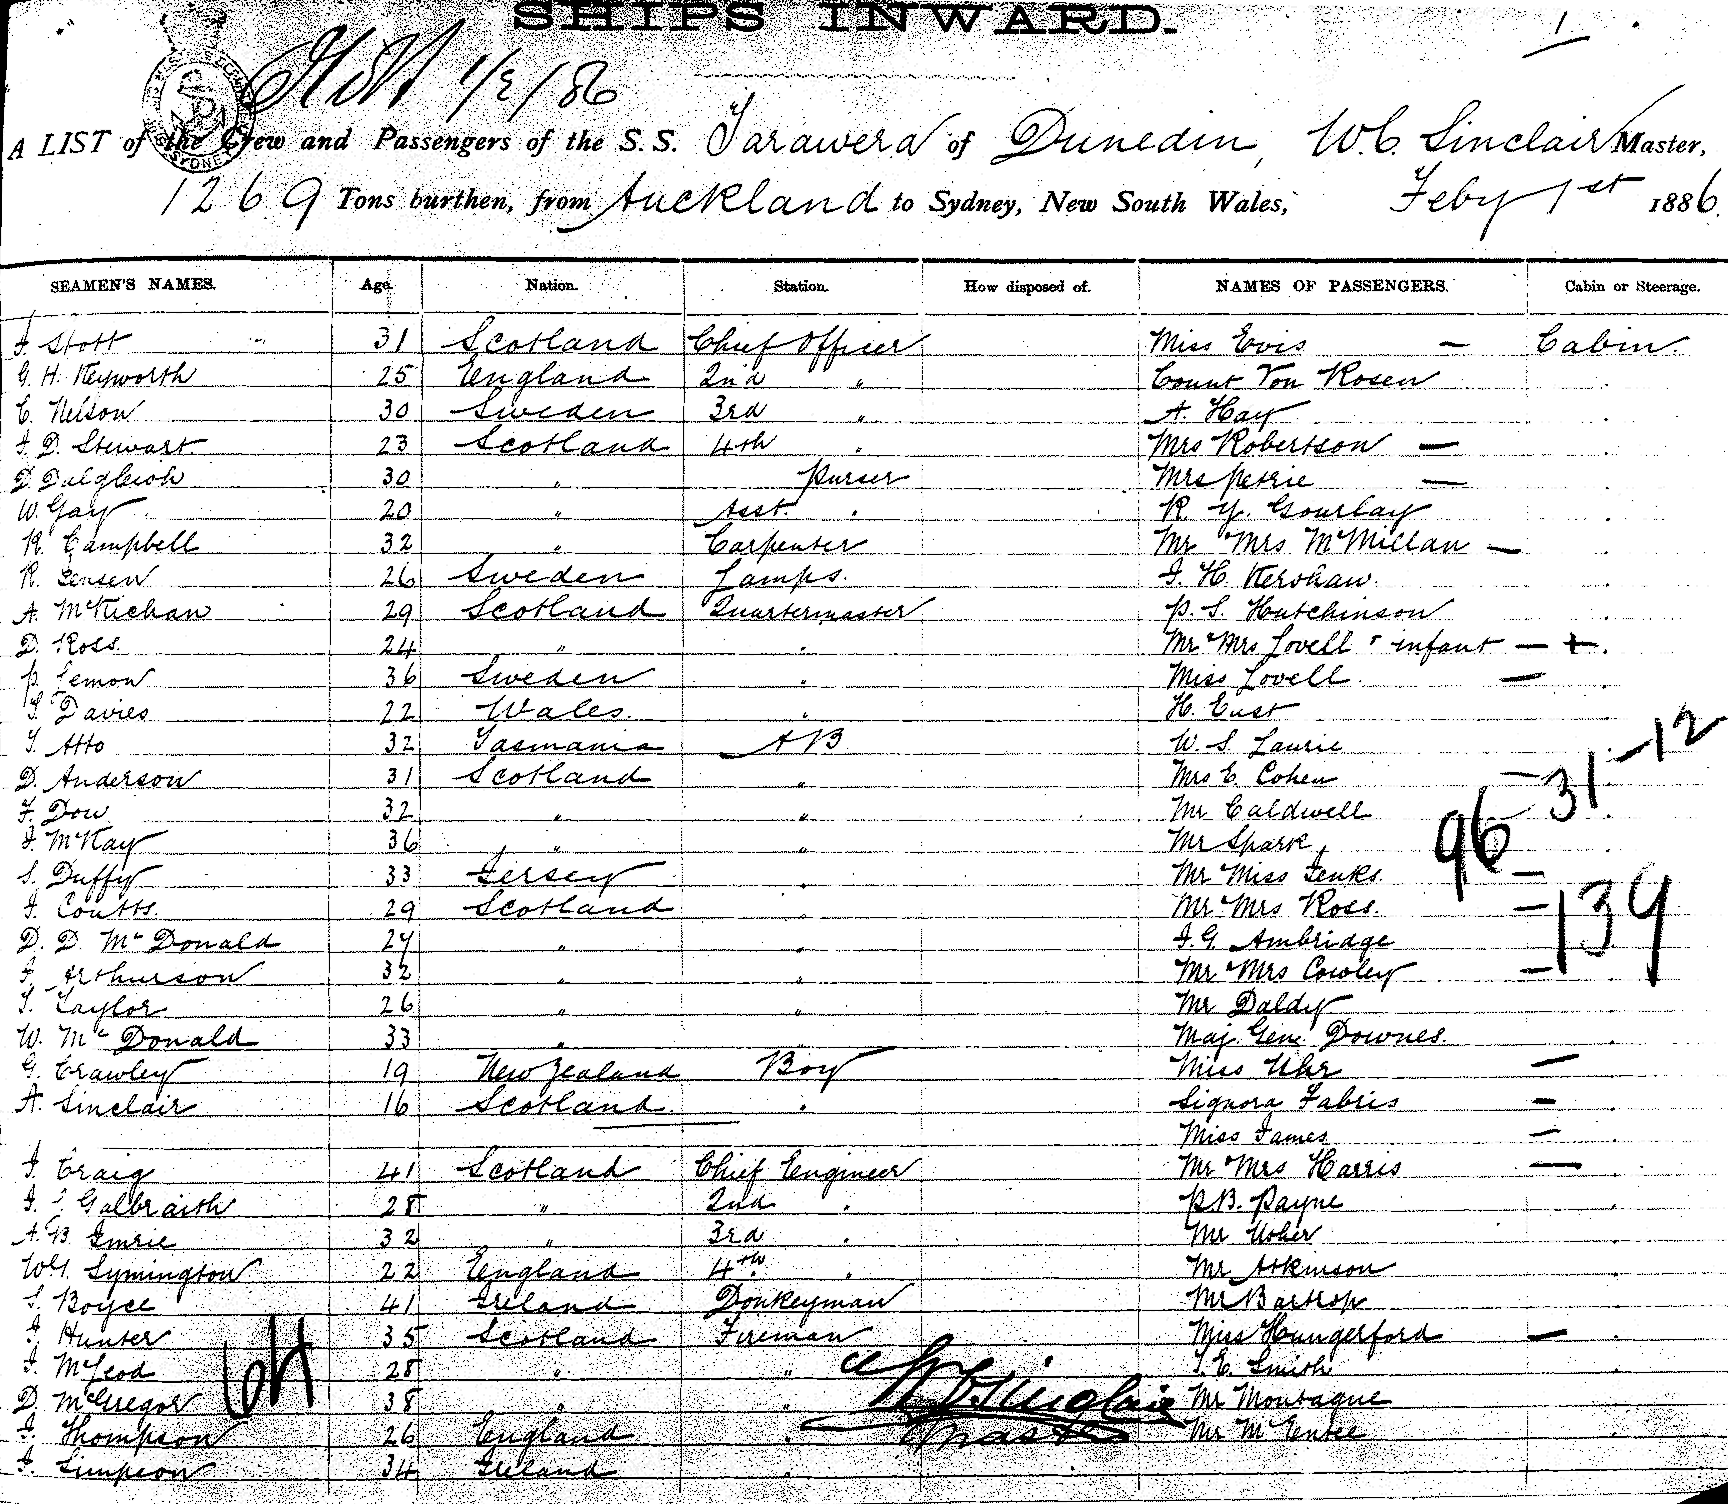 SHIPS INWARD.
1
1/2/86
A LIST of the Crew and Passengers of the S.S. Tarawera of Dunedin, W.C. Sinclair Master,
1269 Tons burthen, from Auckland to Sydney, New South Wales, Feby 1st 1886.
SEAMEN'S NAMES. Age. Nation. Station. How disposed of. NAMES OF PASSENGERS. Cabin or Steerage.
J. Stott 31 Scotland Chief Officer Miss Evis — Cabin.
G. H. Keyworth 25 England 2nd " Count Von Rosen
C. Nelson 30 Sweden 3rd " A. Hay
J. D. Stewart 23 Scotland 4th " Mrs Robertson —
D. Dalgleish 30 " Purser Mrs Petrie —
W. Gay 20 " Asst. " R. Y. Gourlay
R. Campbell 32 " Carpenter Mr " Mrs McMillan —
R. Jensen 26 Sweden Lamps. J. H. Kershaw.
A. McKichan 29 Scotland Quartermaster P. S. Hutchinson
D. Ross. 24 " " Mr " Mrs Lovell " infant — +.
P. Lemon 36 Sweden " Miss Lovell. —
Davies 22 Wales " H. East
T. Atto 32 Tasmania AB W. S. Laurie
D. Anderson 31 Scotland " Mrs E. Cohen — 31 - 12
F. Dow 32 " " Mr Caldwell
J. McKay 36 " " Mr Spark 96
S. Duffy 33 Jersey " Mr " Miss Jenks —
J. Coutts. 29 Scotland " Mr " Mrs Ross. — 139
D. D. McDonald 27 " " J. G. Ambridge
J. Arthurson 32 " " Mr " Mrs Cowley —
T. Taylor 26 " " Mr Daldy
W. McDonald 33 " " Maj. Gen. Downes.
G. Crawley 19 New Zealand Boy Miss Uhr —
A. Sinclair 16 Scotland " Signora Fabris —
Miss James —
J. Craig 41 Scotland Chief Engineer Mr " Mrs Harris —
J. Galbraith 28 " 2nd " P.B. Payne
A. B. Imrie 32 " 3rd " Mr Usher
Symington 22 England 4th " Mr Atkinson
S. Boyce 41 Ireland Donkeyman Mr Bartrop
J. Hunter 35 Scotland Fireman Miss Hungerford —
J. McLeod 28 " " J. E. Smith
D. McGregor 38 " " W.C. Sinclair Mr Montague
J. Thompson 26 England " Master Mr McEntee
J. Simpson 34 Ireland "